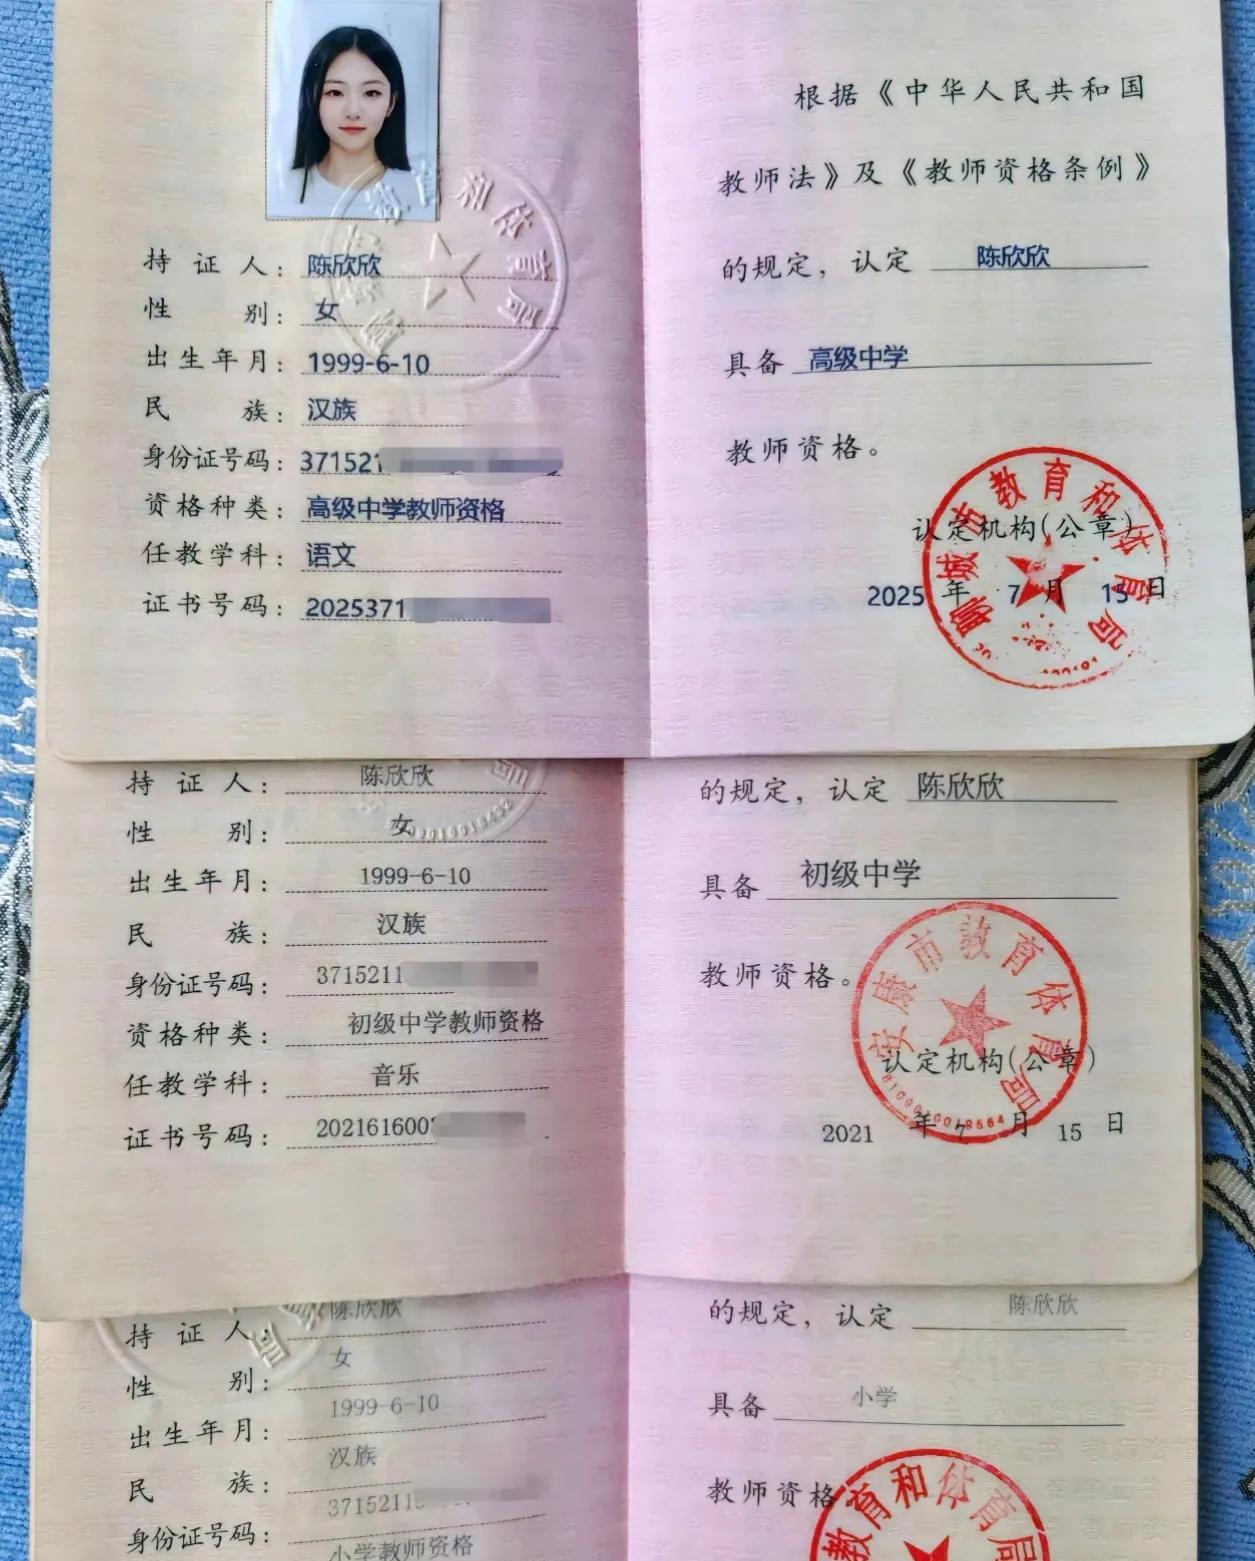 根据《中华人民共和国
教师法》及《教师资格条例》
的规定，认定 陈欣欣
具备 高级中学
教师资格。
认定机构(公章)
2025 年 7 月 15 日
聊城市教育和体育局
持证人：陈欣欣
性别：女
出生年月：1999-6-10
民族：汉族
身份证号码：371521
资格种类：高级中学教师资格
任教学科：语文
证书号码：2025371
持证人：陈欣欣
性别：女
出生年月：1999-6-10
民族：汉族
身份证号码：3715211
资格种类：初级中学教师资格
任教学科：音乐
证书号码：202161600
的规定，认定 陈欣欣
具备 初级中学
教师资格。
认定机构(公章)
2021 年 7 月 15 日
安康市教育体育局
持证人：陈欣欣
性别：女
出生年月：1999-6-10
民族：汉族
身份证号码：3715211
小学教师资格
的规定，认定 陈欣欣
具备 小学
教师资格
教育和体育局